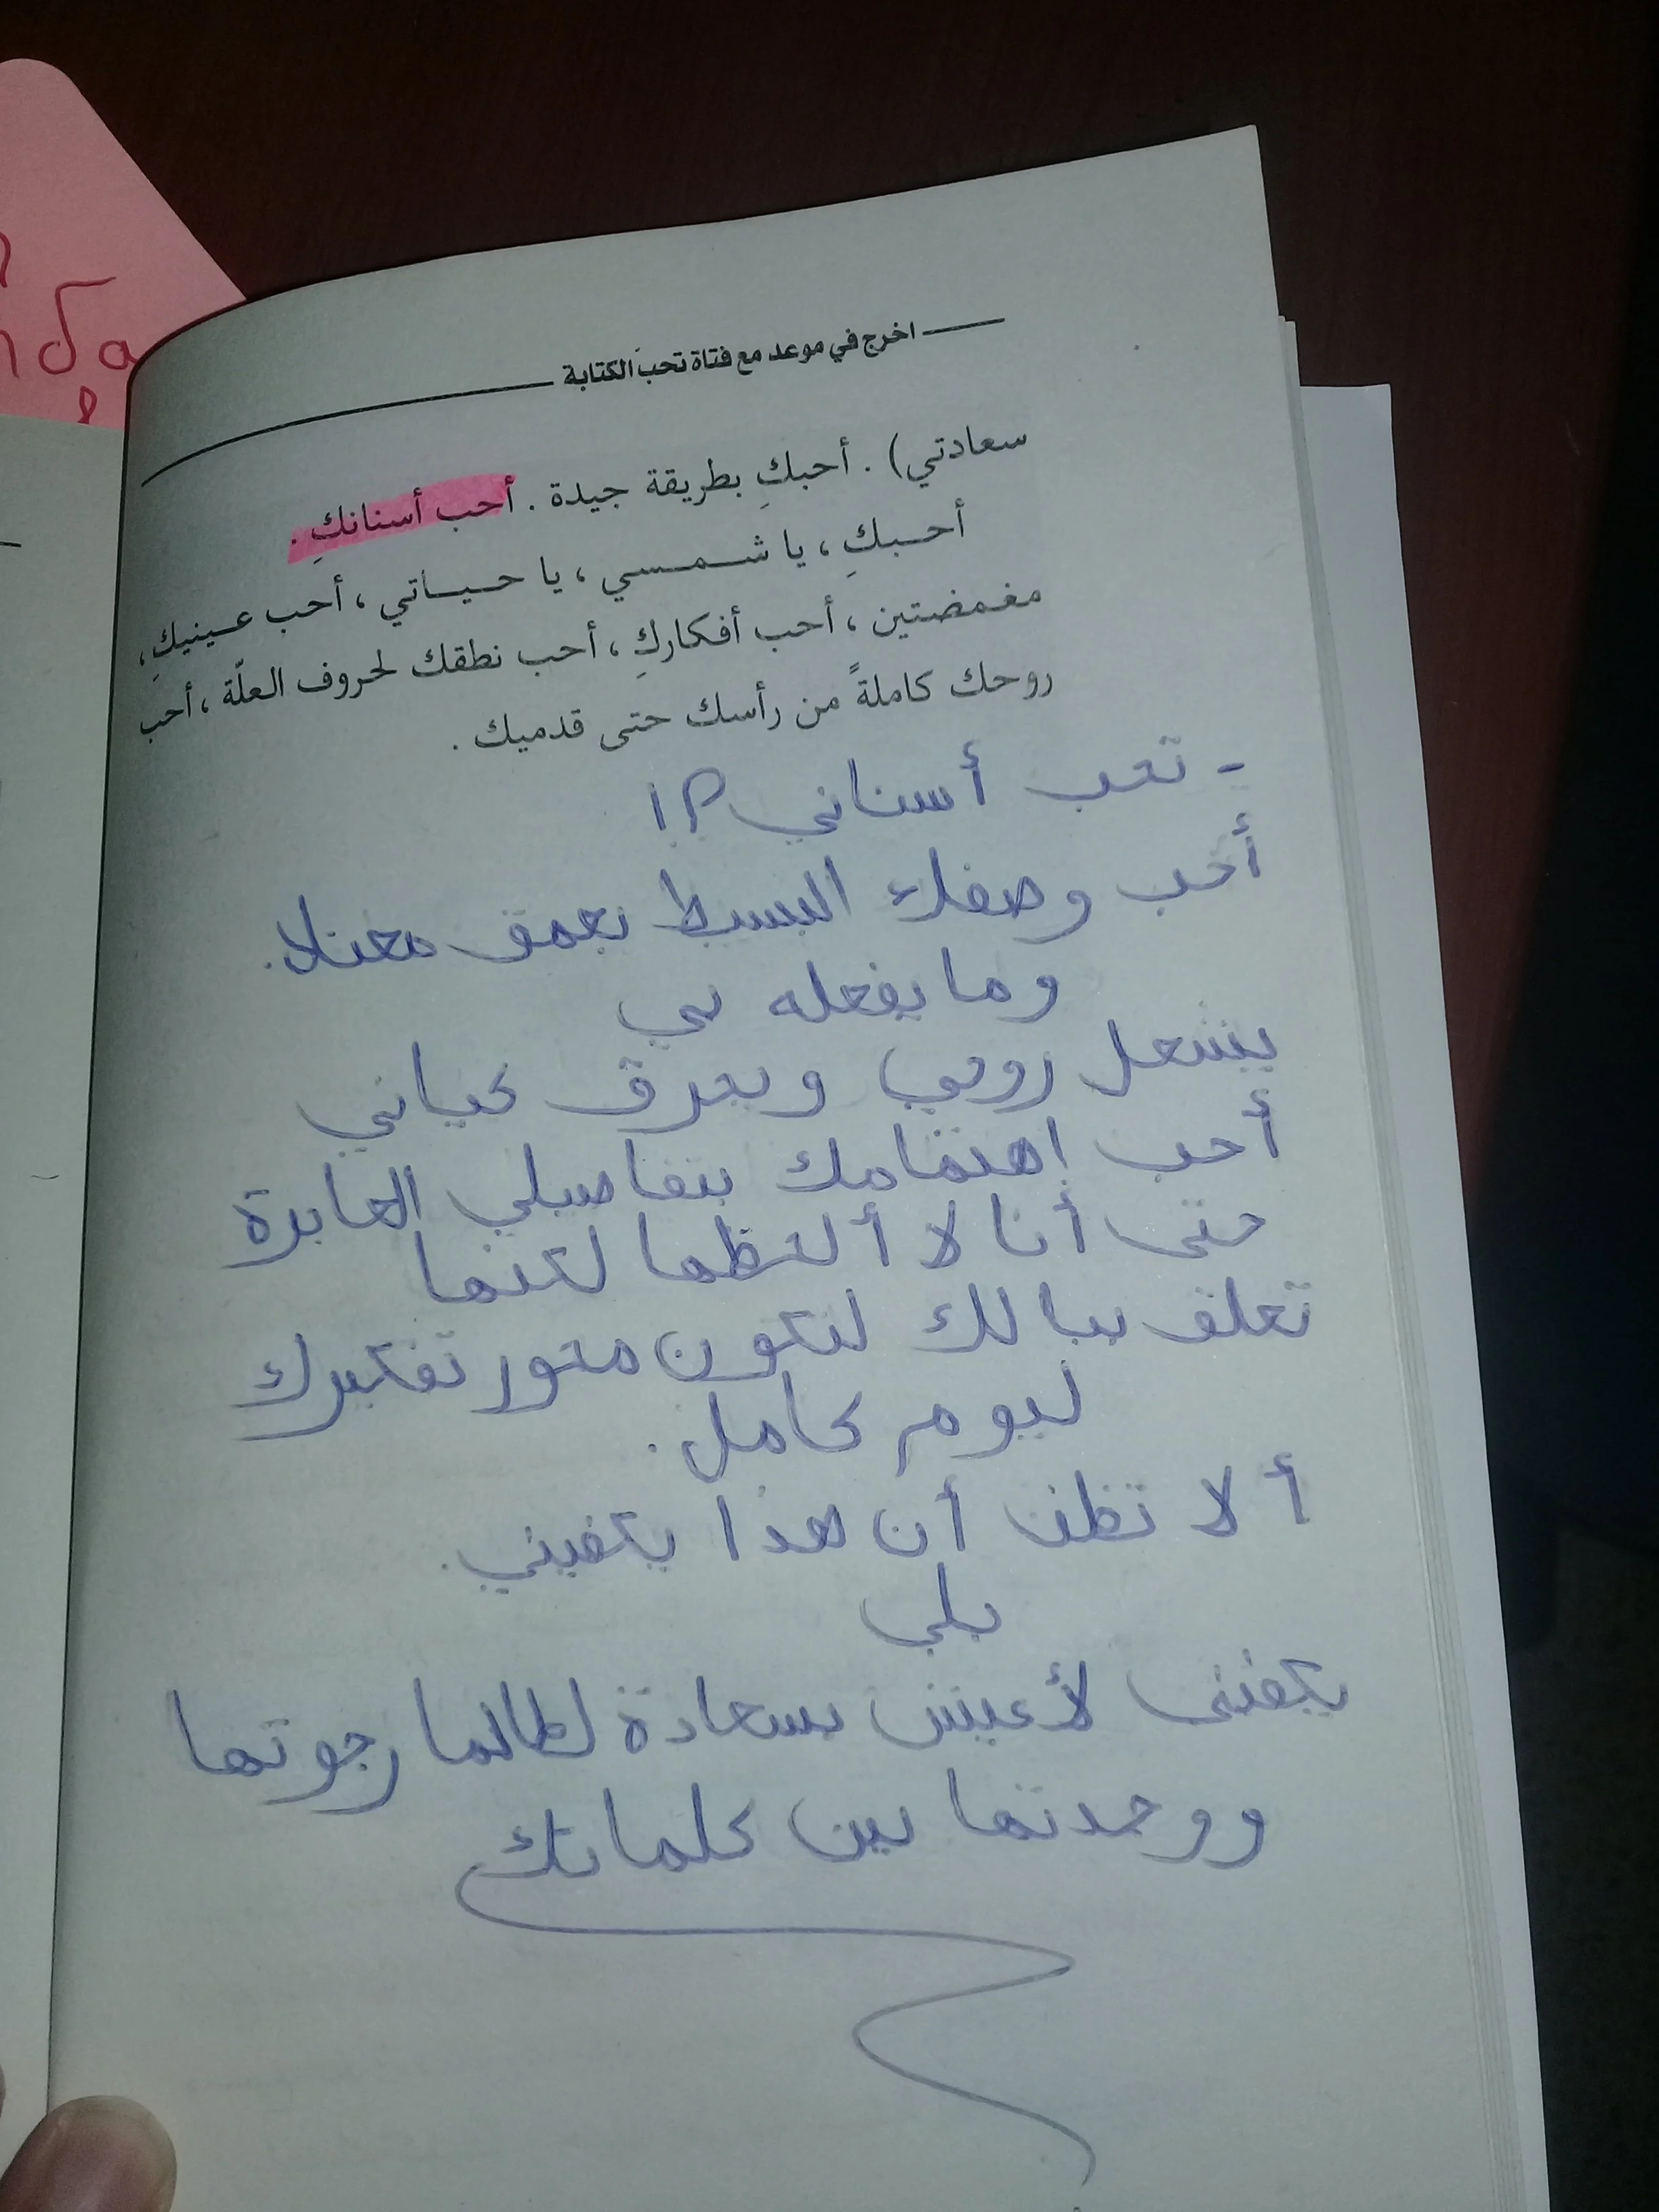 اخرج في موعد مع فتاة تحبّ الكتابة
سعادتي) . أحبكِ بطريقة جيدة . أحب أسنانكِ .
أحبكِ ، يا شمسي ، يا حياتي ، أحب عينيكِ ،
مغمضتين ، أحب أفكاركِ ، أحب نطقك لحروف العلّة ، أحب
روحك كاملةً من رأسك حتى قدميك .
- تحب أسناني ؟!
أحب وصفك البسيط بعمق معناه.
وما يفعله بي
يشعل روحي ويحرق كياني
أحب اهتمامك بتفاصيلي العابرة
حتى أنا لا ألحظها لكنها
تعلق ببالك لتكون محور تفكيرك
ليوم كامل.
ألا تظن أن هذا يكفيني.
بلى
يكفيني لأعيش بسعادة لطالما رجوتها
ووجدتها بين كلماتك